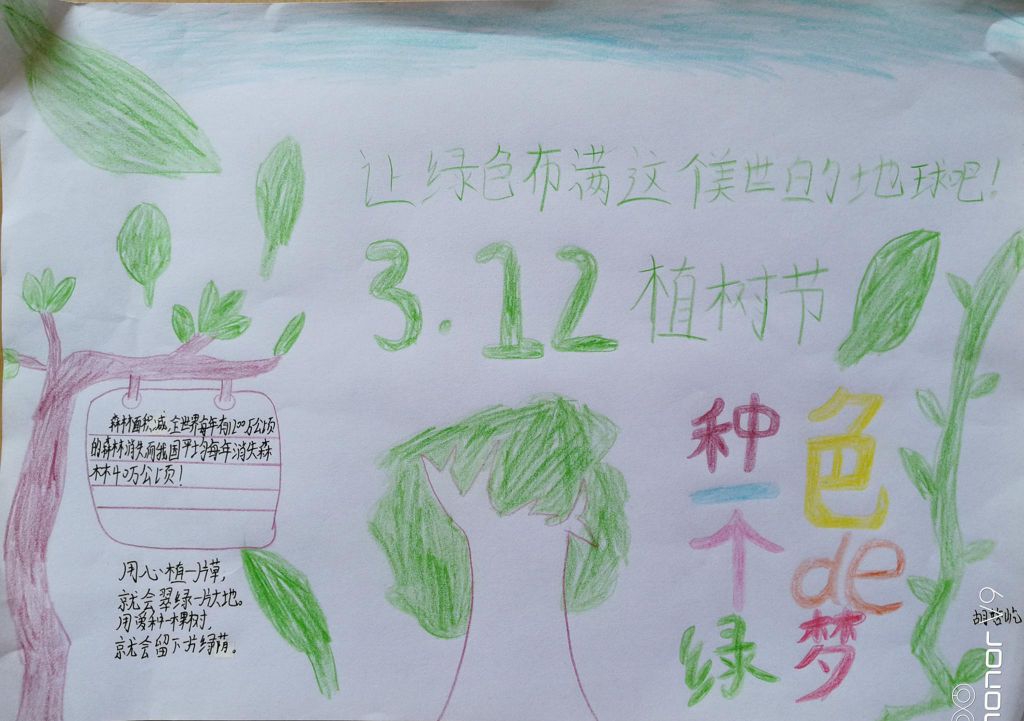 让绿色布满这个美丽的地球吧!
3.12 植树节
森林面积减,全世界每年有1200万公顷
的森林消失而我国平均每年消失森
林40万公顷!
用心植一片草,
就会翠绿一片大地。
用爱种一棵树,
就会留下片绿荫。
种一个绿
色de梦
honor V9